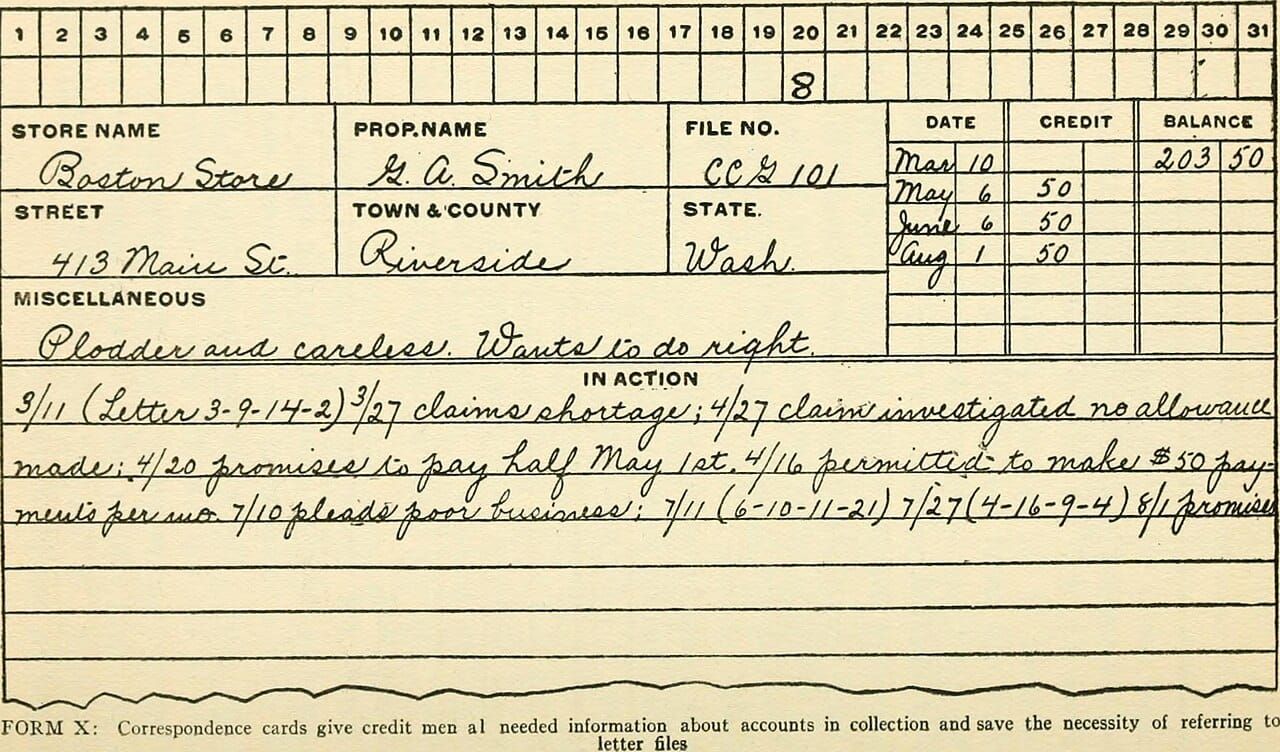 1 2 3 4 5 6 7 8 9 10 11 12 13 14 15 16 17 18 19 20 21 22 23 24 25 26 27 28 29 30 31
8
STORE NAME PROP. NAME FILE NO. DATE CREDIT BALANCE
Boston Store G. A. Smith CCG 101 Mar 10 203 50
May 6 50
STREET TOWN & COUNTY STATE.
June 6 50
413 Main St. Riverside Wash. Aug 1 50
MISCELLANEOUS
Plodder and careless. Wants to do right.
IN ACTION
3/11 (Letter 3-9-14-2) 3/27 claims shortage; 4/27 claim investigated no allowance
made; 4/20 promises to pay half May 1st. 4/16 permitted to make $50 pay-
ments per mo. 7/10 pleads poor business; 7/11 (6-10-11-21) 7/27 (4-16-9-4) 8/1 promises
FORM X: Correspondence cards give credit men al needed information about accounts in collection and save the necessity of referring to
letter files